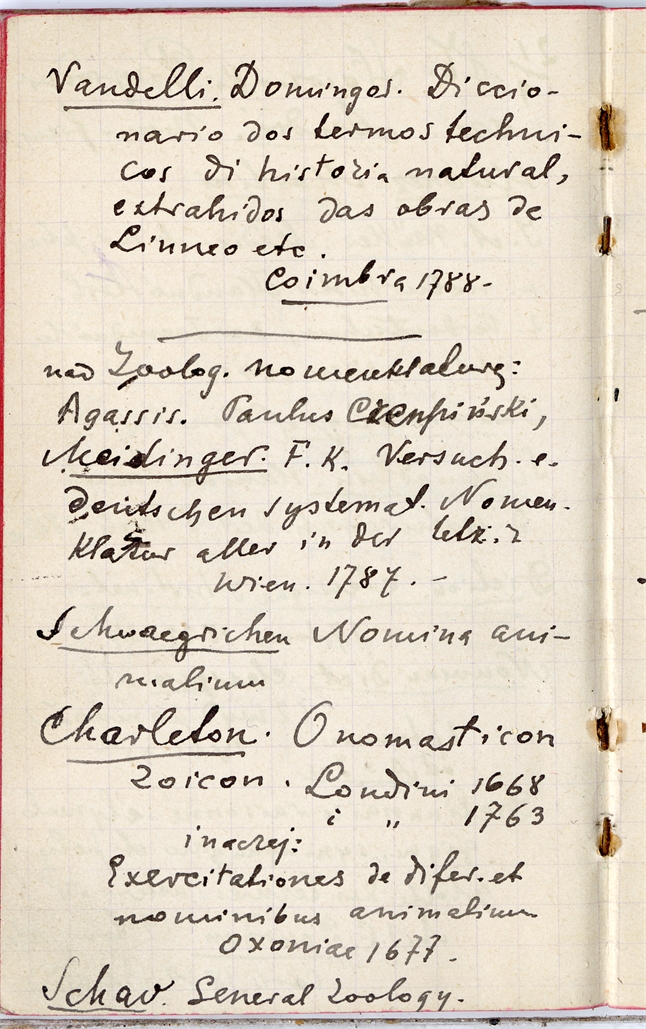 Vandelli. Domingos. Diccio-
nario dos termos techni-
cos di historia natural,
extrahidos das obras de
Linneo etc.
Coimbra 1788.
nad Zoolog. nomenklaturą:
Agassis. Paulus Czenpiński,
Meidinger. F. K. Versuch. e.
deutschen systemat. Nomen.
klatur aller in der letz.
Wien. 1787. -
Schwaegrichen Nomina ani-
malium
Charleton. Onomasticon
zoicon. Londini 1668
i " 1763
inaczej:
Exercitationes de difer. et
nominibus animalium
Oxoniae 1677.
Schav. General Zoology.